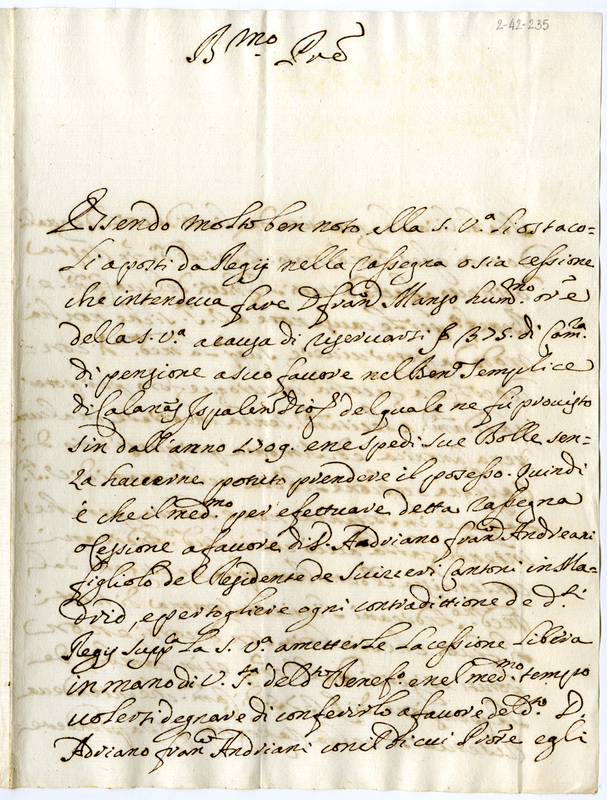 2-42-235
Bmo. Prē
Essendo molto ben noto alla S. V.a li ostaco=
li aposti da Regij nella rassegna o sia cessione
che intendeva fare D. Fran.co Manzo hum.mo or.e
della S. V.a a causa di riservarsi 375. di Cam.ra
di penzione a suo favore nel Ben.o Semplice
di Calanas Ispalens Dios del quale ne fù provisto
sin dall'anno 1709. e ne spedi sue Bolle, sen=
za haverne potuto prendere il posesso. Quindi
è che il med.mo per efettuare detta rassegna
o Cessione a favore di D. Adriano Fran.co Andreani
figliolo del Residente de Suizzeri Cantoni in Ma=
drid, e per togliere ogni contradittione de d.i
Regij supp.ca la S. V.a ametterle la cessione libera
in mano di V. S.ta del d.o Benef.o e nel med.mo tempo
volersi degnare di conferirlo a favore del d.o D.
Adriano Fran.co Andriani con il di cui Prore egli